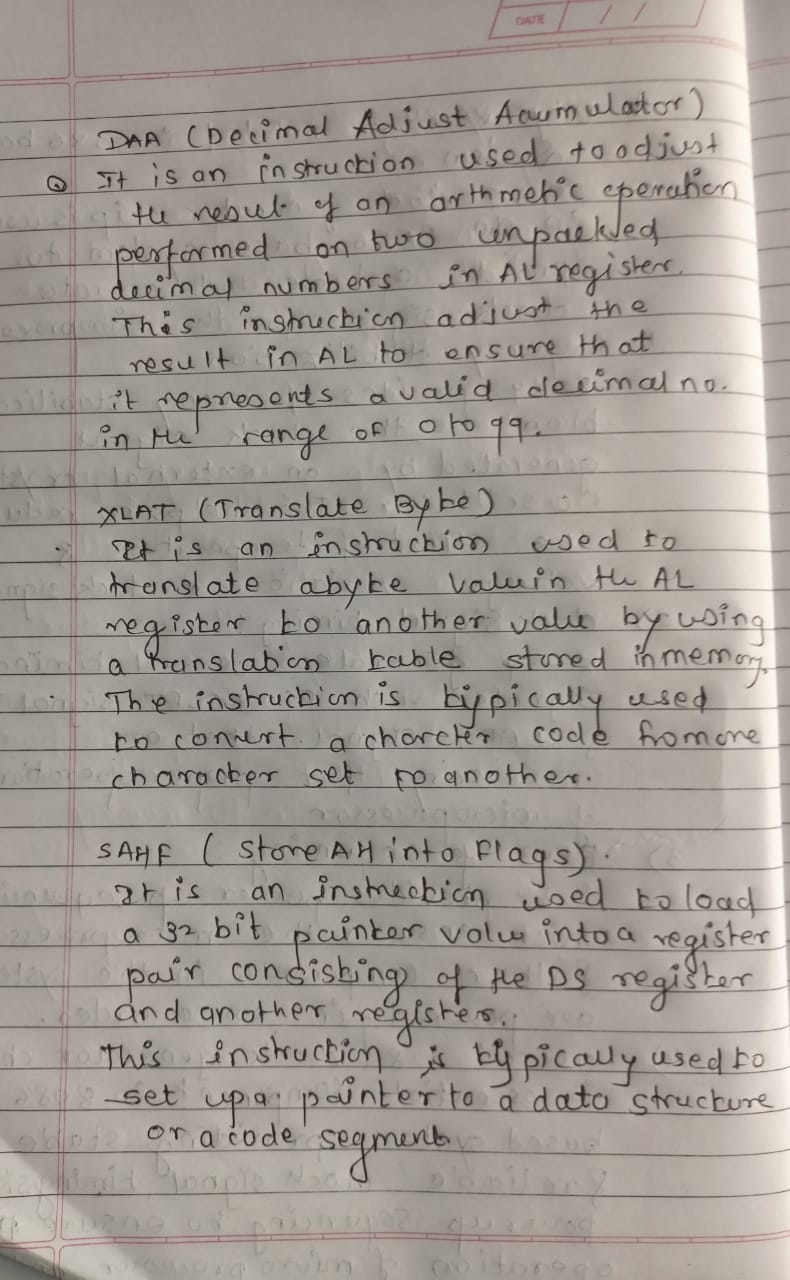 DATE / /
DAA (Decimal Adjust Acumulator)
It is an instruction used to adjust
the result of an arthmetic operation
performed on two unpackled
decimal numbers in AL register.
This instruction adjust the
result in AL to ensure that
it represents a valid decimal no.
in the range of 0 to 99.
XLAT (Translate Byte)
It is an instruction used to
translate a byte value in the AL
register to another value by using
a translation table stored in memory.
The instruction is typically used
to convert a charcter code from one
character set to another.
SAHF ( Store AH into Flags).
It is an instruction used to load
a 32 bit pointer value into a register
pair consisting of the DS register
and another register.
This instruction is typically used to
set up a pointer to a data structure
or a code segment